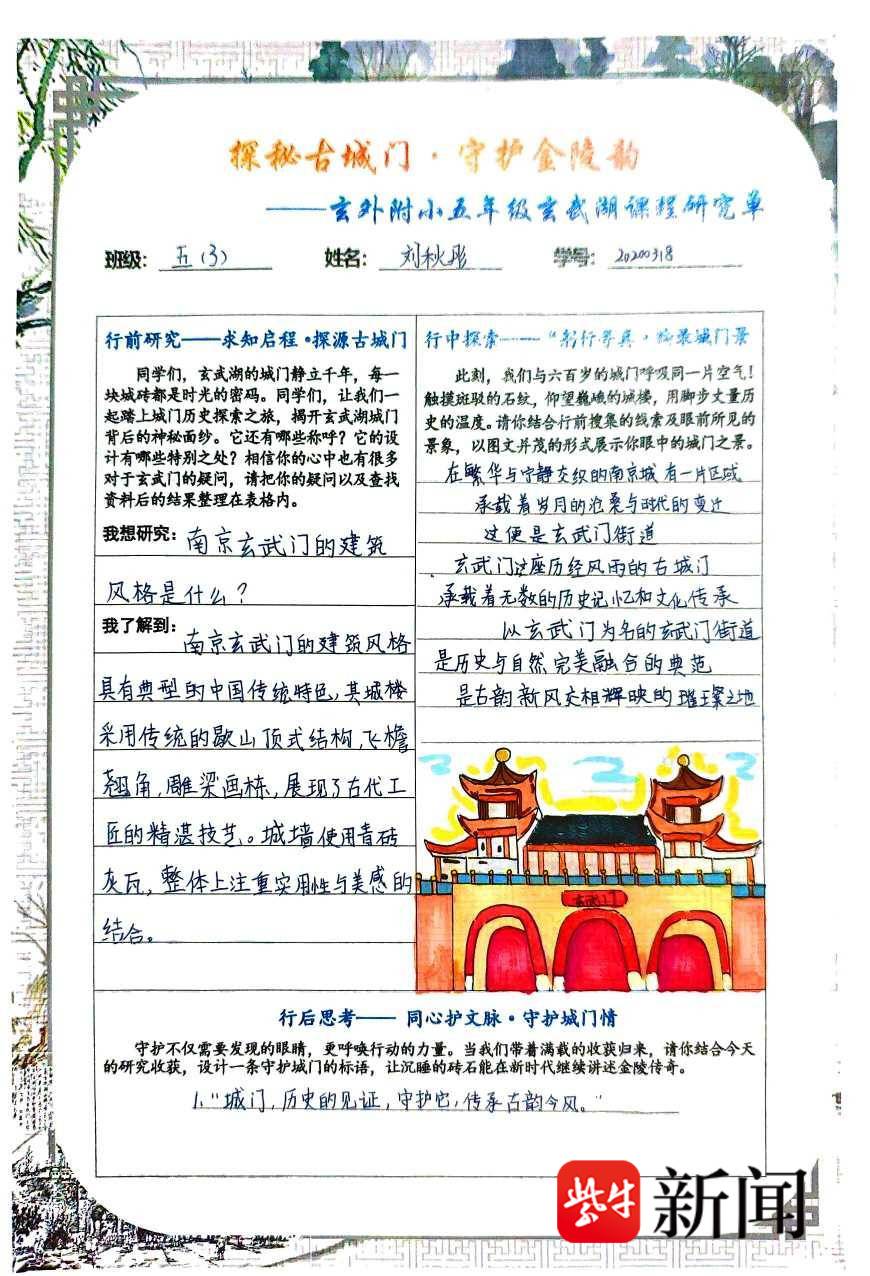 探秘古城门·守护金陵韵
——玄外附小五年级玄武湖课程研究单
班级: 五(3) 姓名: 刘秋彤 学号: 20200318
行前研究——求知启程·探源古城门
同学们，玄武湖的城门静立千年，每一
块城砖都是时光的密码。同学们，让我们一
起踏上城门历史探索之旅，揭开玄武湖城门
背后的神秘面纱。它还有哪些称呼？它的设
计有哪些特别之处？相信你的心中也有很多
对于玄武门的疑问，请把你的疑问以及查找
资料后的结果整理在表格内。
我想研究: 南京玄武门的建筑
风格是什么？
我了解到: 南京玄武门的建筑风格
具有典型的中国传统特色,其城楼
采用传统的歇山顶式结构,飞檐
翘角,雕梁画栋,展现了古代工
匠的精湛技艺。城墙使用青砖
灰瓦,整体上注重实用性与美感的
结合。
行中探索——"躬行 城门景
此刻，我们与六百岁的城门呼吸同一片空气！
触摸斑驳的石纹，仰望巍峨的城楼，用脚步丈量历
史的温度。请你结合行前搜集的线索及眼前所见的
景象，以图文并茂的形式展示你眼中的城门之景。
在繁华与宁静交织的南京城有一片区域
承载着岁月的沧桑与时代的变迁
这便是玄武门街道
玄武门这座历经风雨的古城门
承载着无数的历史记忆和文化传承
以玄武门为名的玄武门街道
是历史与自然完美融合的典范
是古韵新风交相辉映的璀璨之地
玄武门
行后思考—— 同心护文脉·守护城门情
守护不仅需要发现的眼睛，更呼唤行动的力量。当我们带着满载的收获归来，请你结合今天
的研究收获，设计一条守护城门的标语，让沉睡的砖石能在新时代继续讲述金陵传奇。
1."城门,历史的见证,守护它,传承古韵今风。"
紫牛 新闻